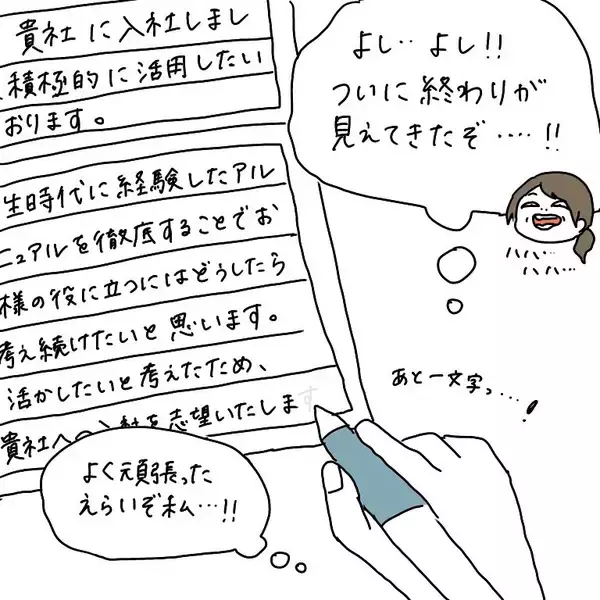 貴社に入社しまし
積極的に活用したい
おります。
よし‥よし!!
ついに終わりが
見えてきたぞ‥‥!!
ハハハ…
ハハハ…
生時代に経験したアル
ニュアルを徹底することでお
様の役に立つにはどうしたら
考え続けたいと思います。
活かしたいと考えたため、
貴社への入社を志望いたします
あと一文字っ‥‥!
よく頑張った
えらいぞ私…!!